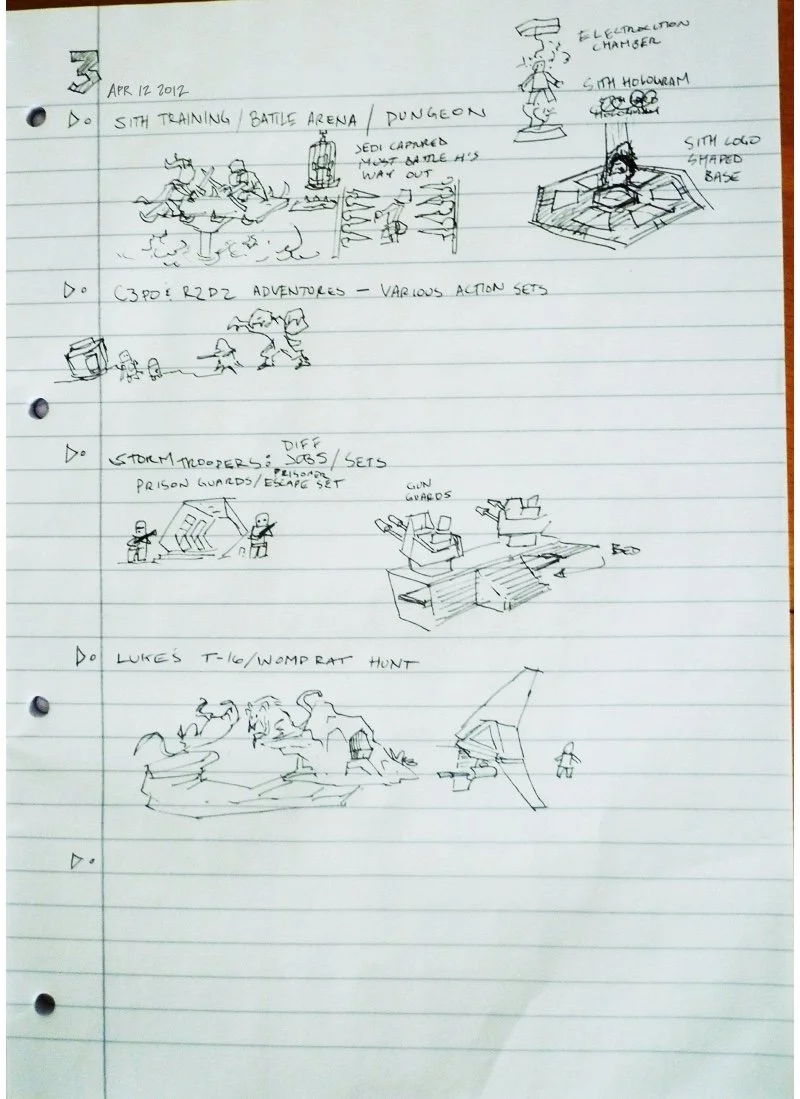 3
APR 12 2012
ELECTROCUTION
CHAMBER
SITH HOLOGRAM
SITH TRAINING / BATTLE ARENA / DUNGEON
JEDI CAPTURED
MUST BATTLE H'S
WAY OUT
SITH LOGO
SHAPED
BASE
C3PO & R2D2 ADVENTURES — VARIOUS ACTION SETS
STORMTROOPERS: DIFF JOBS / SETS
PRISON GUARDS / PRISONER ESCAPE SET
GUN
GUARDS
LUKE'S T-16/WOMPRAT HUNT